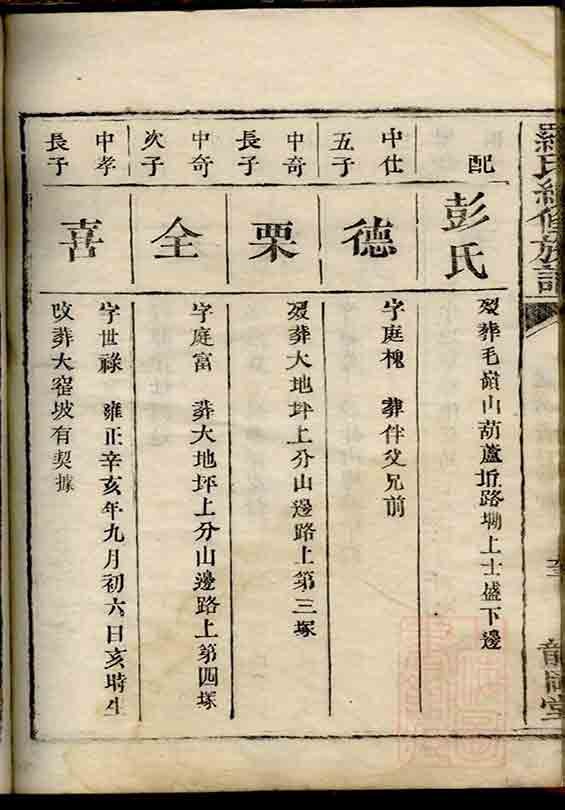 羅氏續修族譜
配
彭氏
歿葬毛嶺山葫蘆坵路塝上士盛下邊
中仕
五子
德
字庭槐 葬伴父兄前
中奇
長子
栗
歿葬大地坪上分山邊路上第三塚
中奇
次子
全
字庭富 葬大地坪上分山邊路上第四塚
中孝
長子
喜
字世祿 雍正辛亥年九月初六日亥時生
改葬大窰坡有契據